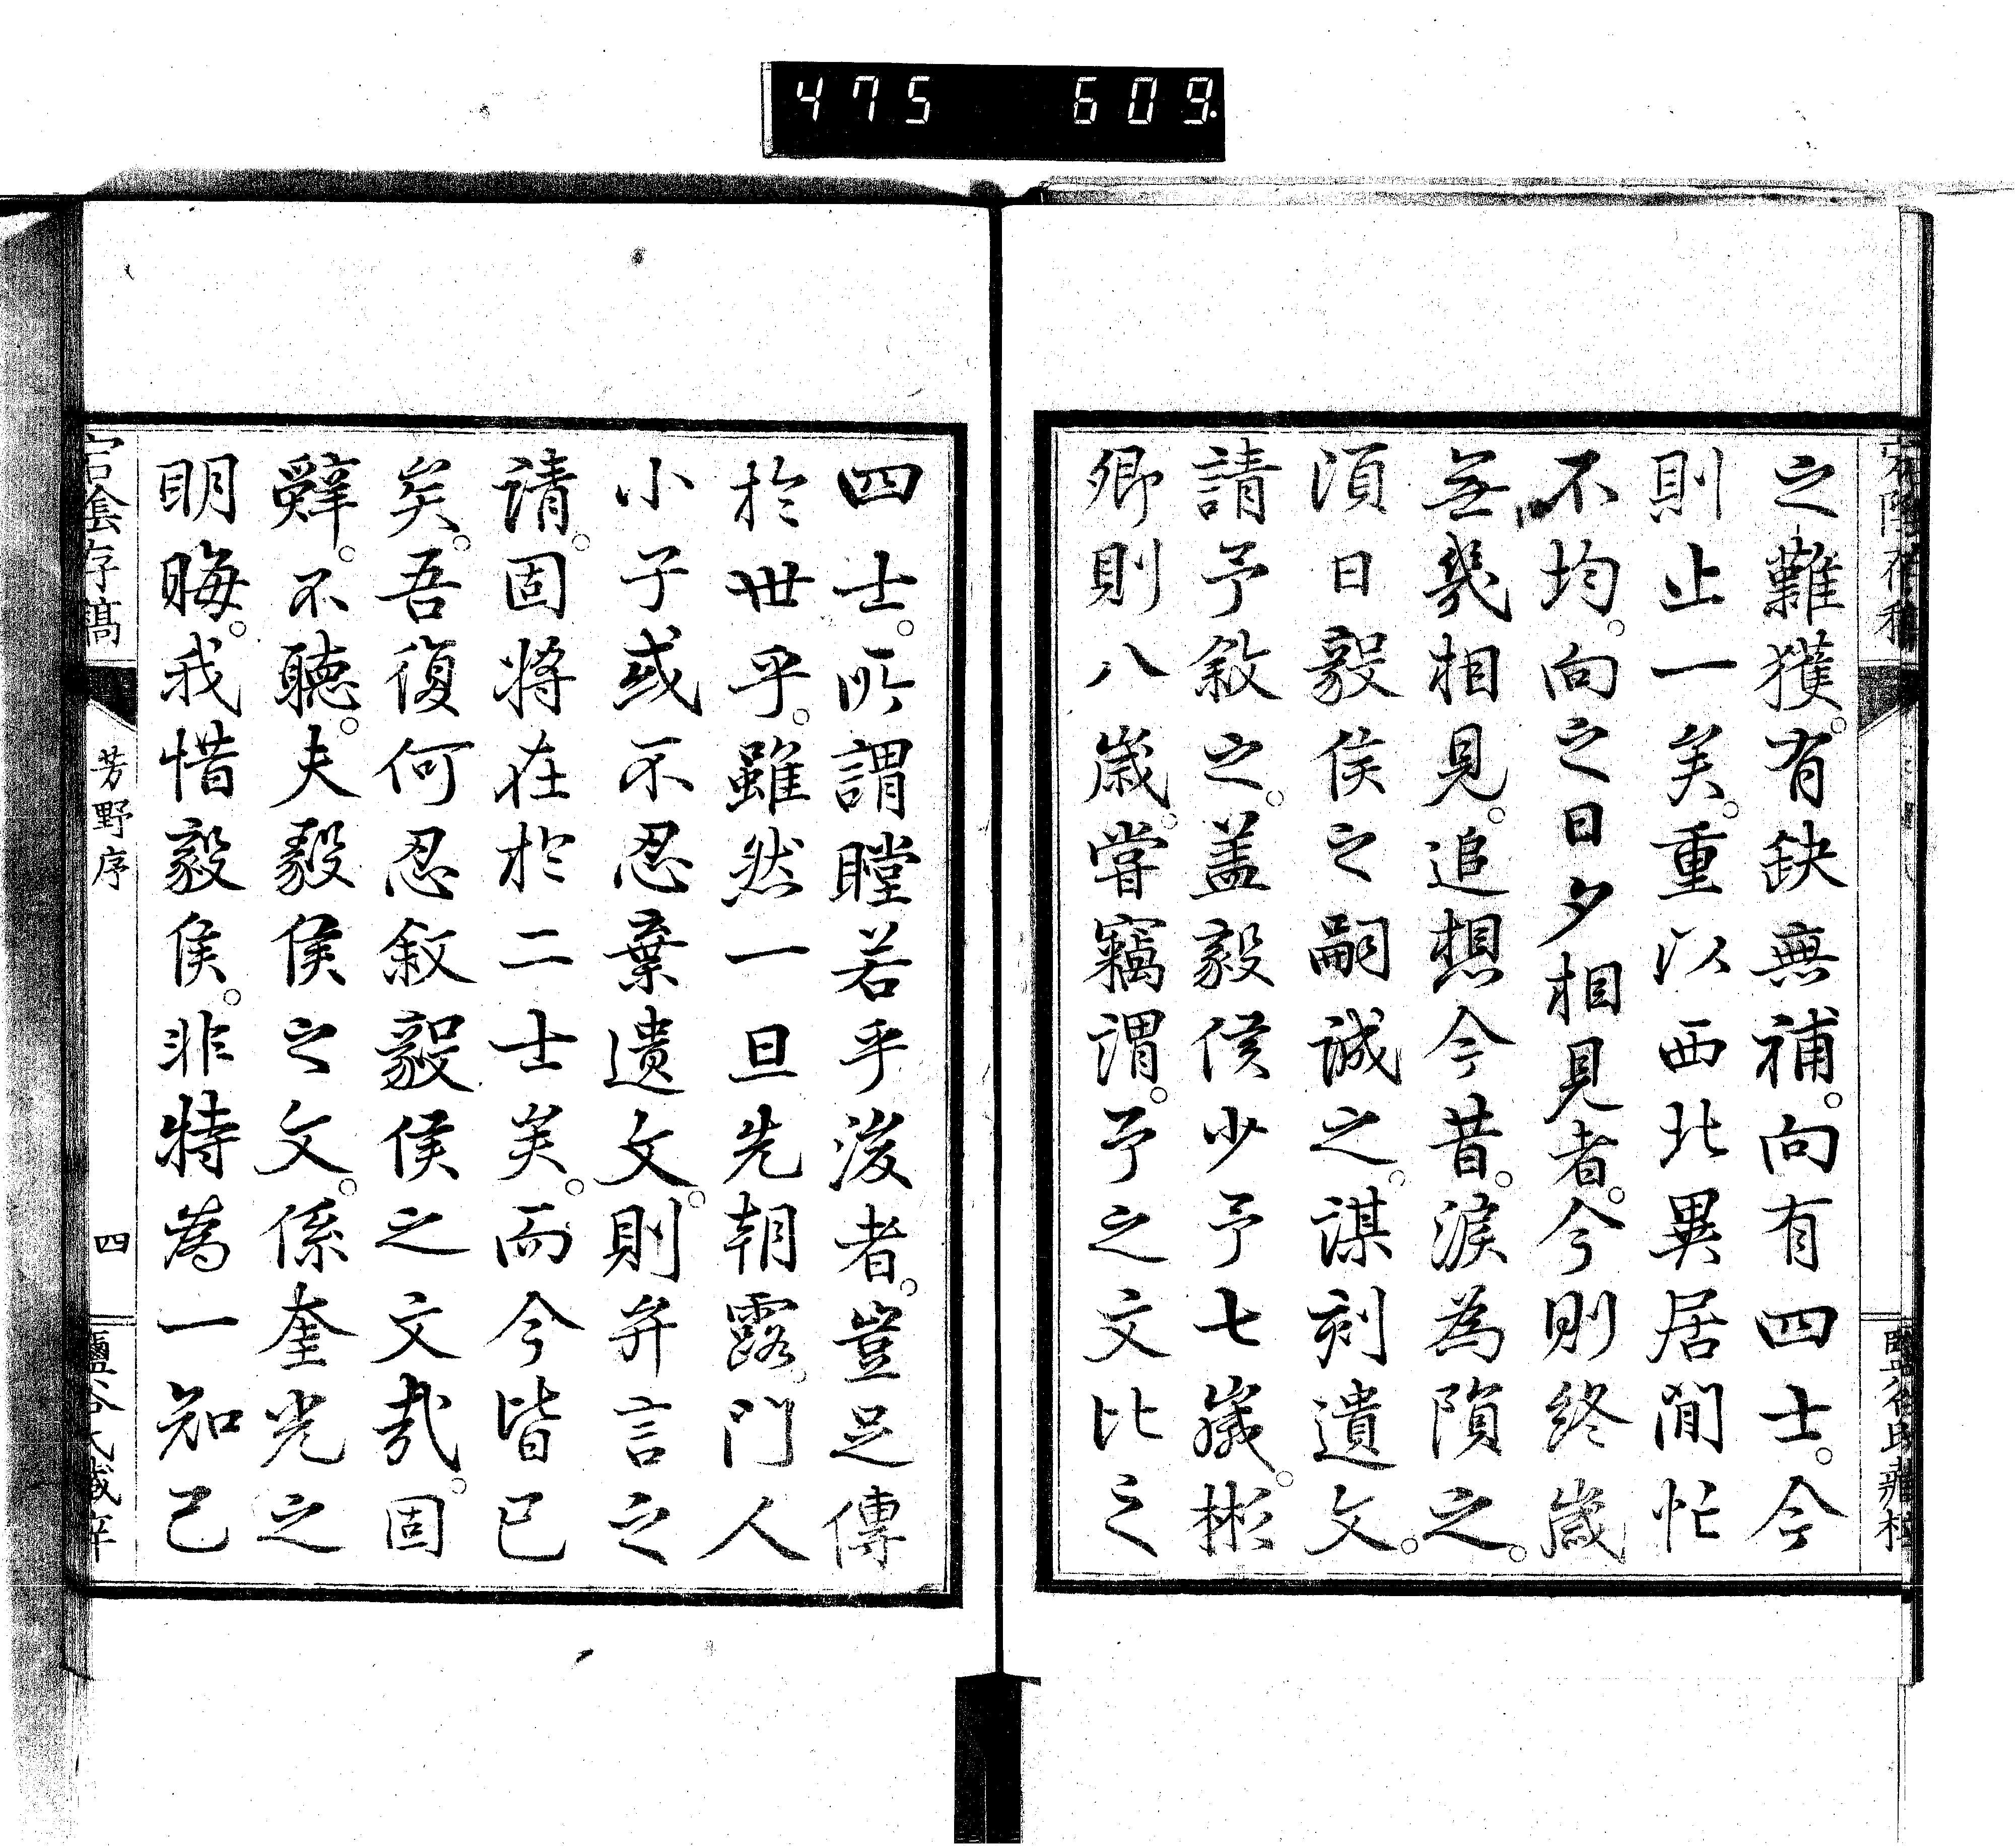 475 609
之難獲。有缺無補。向有四士。今
則止一矣。重以西北異居閒忙
不均。向之日夕相見者。今則終歲
無幾相見。追想今昔。淚為隕之。
須日毅侯之嗣誠之。謀刻遺文。
請予敘之。蓋毅侯少予七歲。彬
卿則八歲。嘗竊謂。予之文比之
四士。所謂瞠若乎後者。豈足傳
於世乎。雖然一旦先朝露。門人
小子或不忍棄遺文。則并言之
請。固將在於二士矣。而今皆已
矣。吾復何忍敘毅侯之文哉。固
辭。不聽。夫毅侯之文。係奎光之
明晦。我惜毅侯。非特為一知己
宕陰存稿
芳野序
四